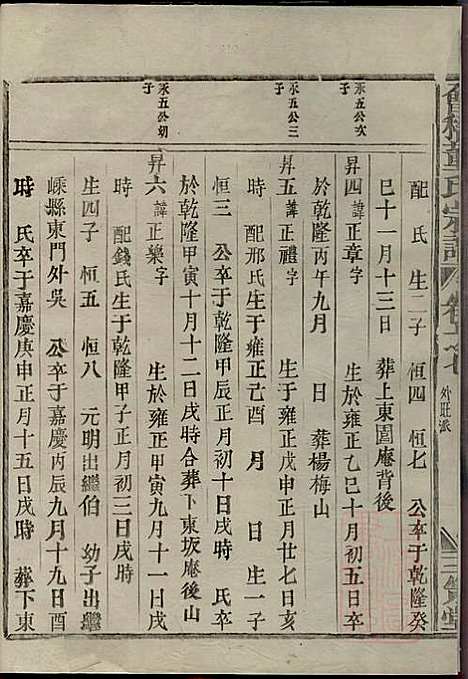 會稽董氏宗譜 卷十七 外莊派 三策堂
永五公次子
永五公三子
永五公幼子
配 氏 生二子 恒四 恒七 公卒于乾隆癸
巳十一月十三日 葬上東園庵背後
昇四 諱正章 字 生於雍正乙巳十月初五日卒
於乾隆丙午九月 日 葬楊梅山
昇五 諱正禮 字 生於雍正戊申正月廿七日亥
時 配邢氏生于雍正己酉 月 日 生一子
恒三 公卒于乾隆甲辰正月初十日戌時 氏卒
於乾隆甲寅十月十二日戌時合葬下東坂庵後山
昇六 諱正樂 字 生於雍正甲寅九月十一日戌
時 配錢氏生于乾隆甲子正月初三日戌時
生四子 恒五 恒八 元明出繼伯 幼子出繼
嵊縣東門外吳 公卒于嘉慶丙辰九月十九日酉
時 氏卒于嘉慶庚申正月十五日戌時 葬下東